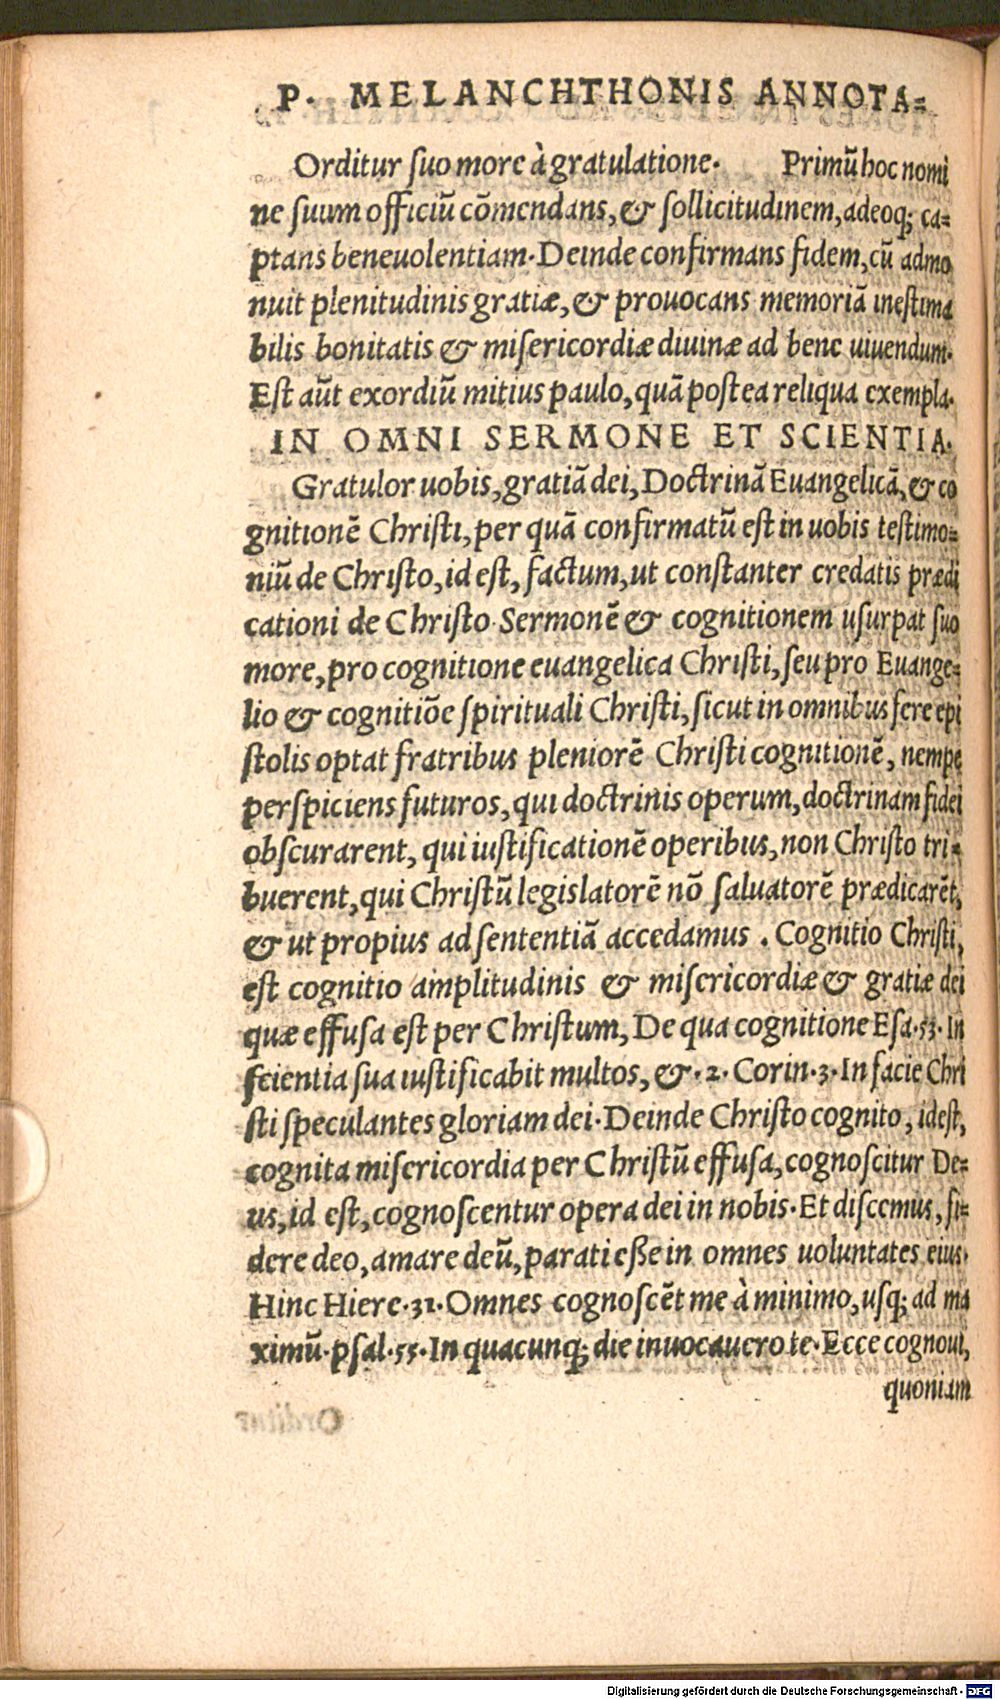 P. MELANCHTHONIS ANNOTA=
Orditur ſuo more à gratulatione. Primū hoc nomi
ne ſuum officiū cōmendans, & ſollicitudinem, adeoq; ca=
ptans beneuolentiam. Deinde confirmans fidem, cū admo
nuit plenitudinis gratiæ, & prouocans memoriā ineſtima
bilis bonitatis & miſericordiæ diuinæ ad bene uiuendum.
Eſt aūt exordiū mitius paulo, quā poſtea reliqua exempla.
IN OMNI SERMONE ET SCIENTIA.
Gratulor uobis, gratiā dei, Doctrinā Euangelicā, & co
gnitionē Chriſti, per quā confirmatū eſt in uobis teſtimo=
niū de Chriſto, id eſt, factum, ut conſtanter credatis prædi
cationi de Chriſto. Sermonē & cognitionem uſurpat ſuo
more, pro cognitione euangelica Chriſti, ſeu pro Euange=
lio & cognitiōe ſpirituali Chriſti, ſicut in omnibus fere epi
ſtolis optat fratribus pleniorē Chriſti cognitionē, nempe
perſpiciens futuros, qui doctrinis operum, doctrinam fidei
obſcurarent, qui iuſtificationē operibus, non Chriſto tri=
buerent, qui Chriſtū legislatorē nō ſaluatorē prædicarēt,
& ut propius ad ſententiā accedamus. Cognitio Chriſti,
eſt cognitio amplitudinis & miſericordiæ & gratiæ dei
quæ effuſa eſt per Chriſtum, De qua cognitione Eſa.53. In
ſcientia ſua iuſtificabit multos, &.2. Corin.3. In facie Chri
ſti ſpeculantes gloriam dei. Deinde Chriſto cognito, ideſt,
cognita miſericordia per Chriſtū effuſa, cognoſcitur De=
us, id eſt, cognoſcentur opera dei in nobis. Et diſcemus, fi=
dere deo, amare deū, parati eſſe in omnes uoluntates eius.
Hinc Hiere.31. Omnes cognoſcēt me à minimo, uſq; ad ma
ximū. pſal.55. In quacunq; die inuocauero te. Ecce cognoui,
quoniam
Digitalisierung gefördert durch die Deutsche Forschungsgemeinschaft - DFG